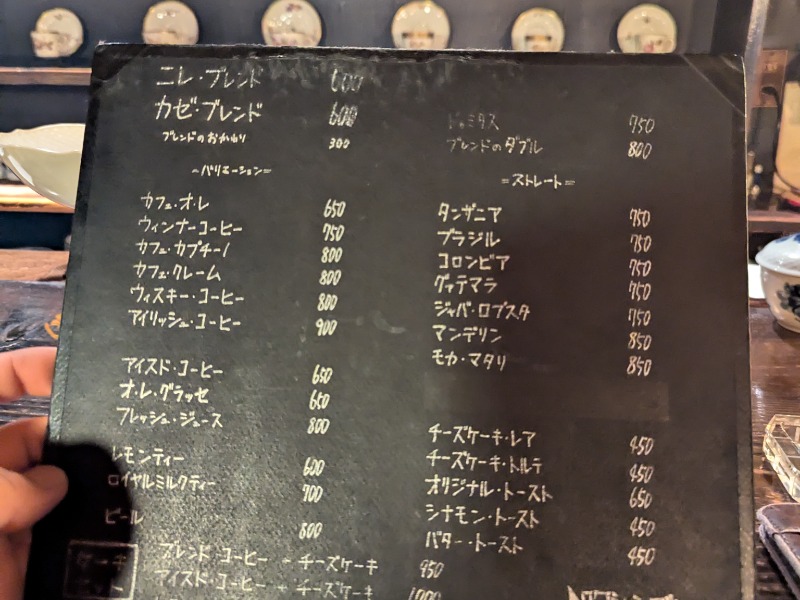 ニレ・ブレンド 600
カゼ・ブレンド 600
ブレンドのおかわり 300
～バリエーション＝
カフェ・オ・レ 650
ウィンナーコーヒー 750
カフェ・カプチーノ 800
カフェ・クレーム 800
ウィスキー・コーヒー 800
アイリッシュ・コーヒー 900
アイスド・コーヒー 650
オ・レ・グラッセ 650
フレッシュ・ジュース 800
レモンティー 600
ロイヤルミルクティー 700
ビール 600
ブレンド・コーヒー + チーズケーキ 950
アイスド・コーヒー + チーズケーキ 1000
ケーキ
750
ブレンドのダブル 800
＝ストレート＝
タンザニア 750
ブラジル 750
コロンビア 750
グァテマラ 750
ジャバ・ロブスタ 750
マンデリン 850
モカ・マタリ 850
チーズケーキ・レア 450
チーズケーキ・トルテ 450
オリジナル・トースト 650
シナモン・トースト 450
バター・トースト 450